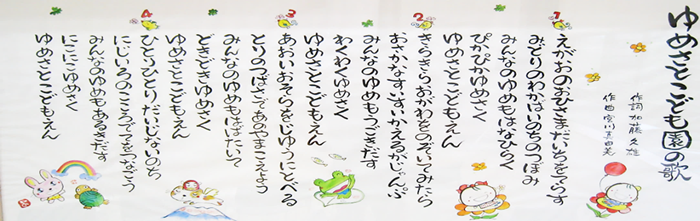 ゆめさとこども園の歌
作詞 加藤久雄
作曲 宮川真由美
1
えがおのおひさまだいちをてらす
みどりのわかばいのちのつぼみ
みんなのゆめもはなひらく
ぴかぴかゆめさく
ゆめさとこどもえん
2
きらきらおがわをのぞいてみたら
おさかなすいすいかえるがじゃんぷ
みんなのゆめもうごきだす
わくわくゆめさく
ゆめさとこどもえん
3
あおいおそらをじゆうにとべる
とりのつばさであのやまこえよう
みんなのゆめもはばたいて
どきどきゆめさく
ゆめさとこどもえん
4
ひとりひとりだいじないのち
にじいろのこころでてをつなごう
みんなのゆめもあるきだす
にこにこゆめさく
ゆめさとこどもえん